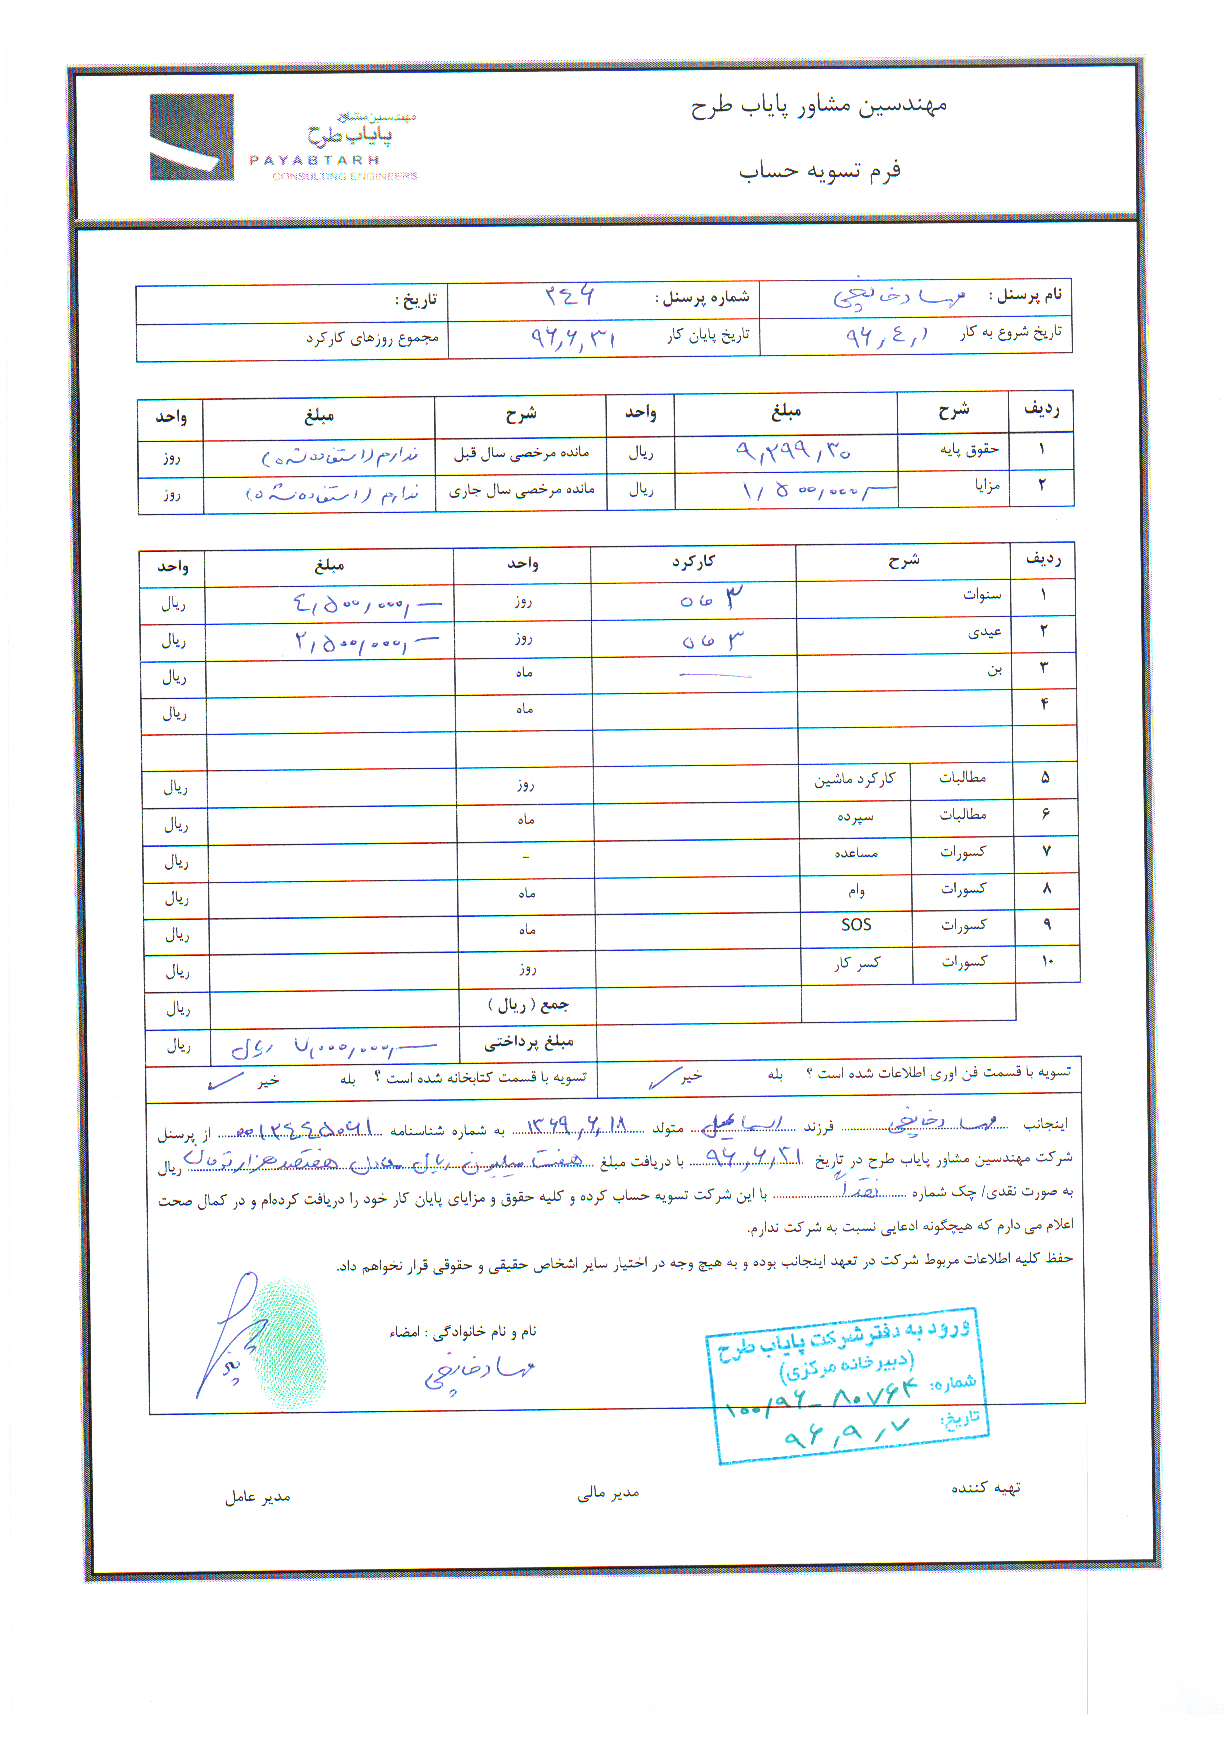 مهندسین مشاور پایاب طرح
مهندسین مشاور
پایاب طرح
PAYABTARH
CONSULTING ENGINEERS
فرم تسویه حساب
نام پرسنل : شماره پرسنل : ۲۴۶ تاریخ :
تاریخ شروع به کار ۹۶,۴,۱ تاریخ پایان کار ۹۶,۶,۳۱ مجموع روزهای کارکرد
ردیف شرح مبلغ واحد شرح مبلغ واحد
۱ حقوق پایه ۹,۲۹۹,۳۰ ریال مانده مرخصی سال قبل ندارم (استفاده شده) روز
۲ مزایا ۱,۵۰۰,۰۰۰ ریال مانده مرخصی سال جاری ندارم (استفاده شده) روز
ردیف شرح کارکرد واحد مبلغ واحد
۱ سنوات ۳ ماه روز ۴,۵۰۰,۰۰۰,— ریال
۲ عیدی ۳ ماه روز ۲,۵۰۰,۰۰۰,— ریال
۳ بن — ماه ریال
۴ ماه ریال
۵ مطالبات کارکرد ماشین روز ریال
۶ مطالبات سپرده ماه ریال
۷ کسورات مساعده - ریال
۸ کسورات وام ماه ریال
۹ کسورات SOS ماه ریال
۱۰ کسورات کسر کار روز ریال
جمع ( ریال ) ریال
مبلغ پرداختی ۷,۰۰۰,۰۰۰,— ریال ریال
تسویه با قسمت فن اوری اطلاعات شده است ؟ بله خیر ✓ تسویه با قسمت کتابخانه شده است ؟ بله خیر ✓
اینجانب فرزند اسماعیل متولد ۱۳۶۹,۶,۱۸ به شماره شناسنامه ۰۰۱۲۴۴۵۰۶۱ از پرسنل
شرکت مهندسین مشاور پایاب طرح در تاریخ ۹۶,۶,۳۱ با دریافت مبلغ هفت میلیون ریال معادل هفتصد هزار تومان ریال
به صورت نقدی/ چک شماره نقداً با این شرکت تسویه حساب کرده و کلیه حقوق و مزایای پایان کار خود را دریافت کرده‌ام و در کمال صحت
اعلام می دارم که هیچگونه ادعایی نسبت به شرکت ندارم.
حفظ کلیه اطلاعات مربوط شرکت در تعهد اینجانب بوده و به هیچ وجه در اختیار سایر اشخاص حقیقی و حقوقی قرار نخواهم داد.
نام و نام خانوادگی : امضاء
ورود به دفتر شرکت پایاب طرح
(دبیرخانه مرکزی)
شماره: ۱۰۰/۹۶-۸۰۷۶۴
تاریخ: ۹۶,۹,۷
تهیه کننده مدیر مالی مدیر عامل